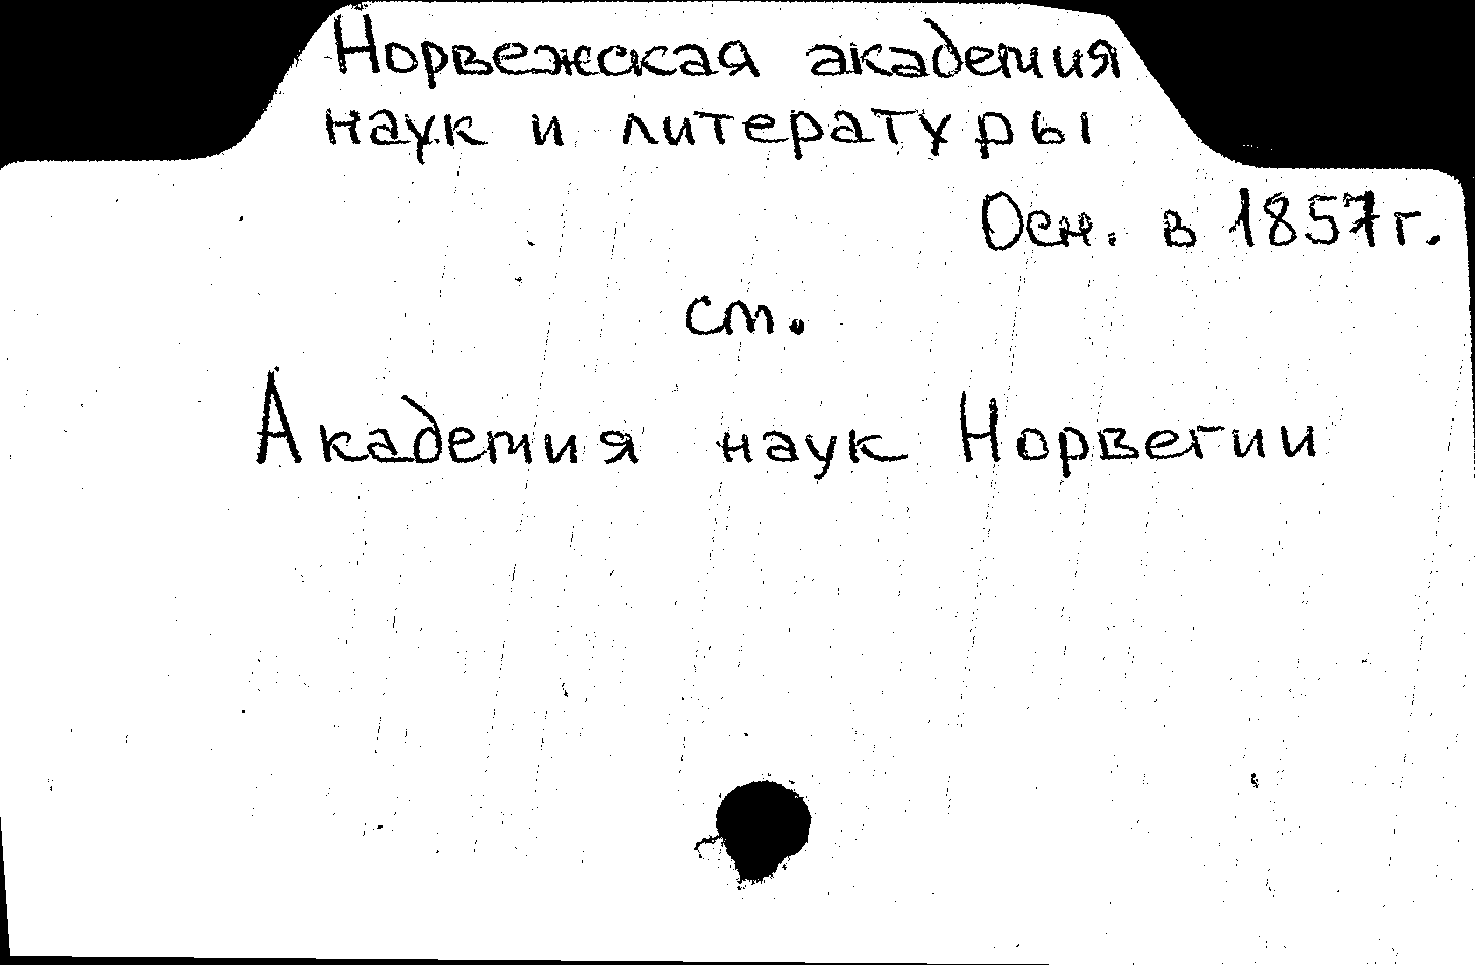 Норвежская академия
наук и литературы
Осн. в 1857 г.
см.
Академия наук Норвегии